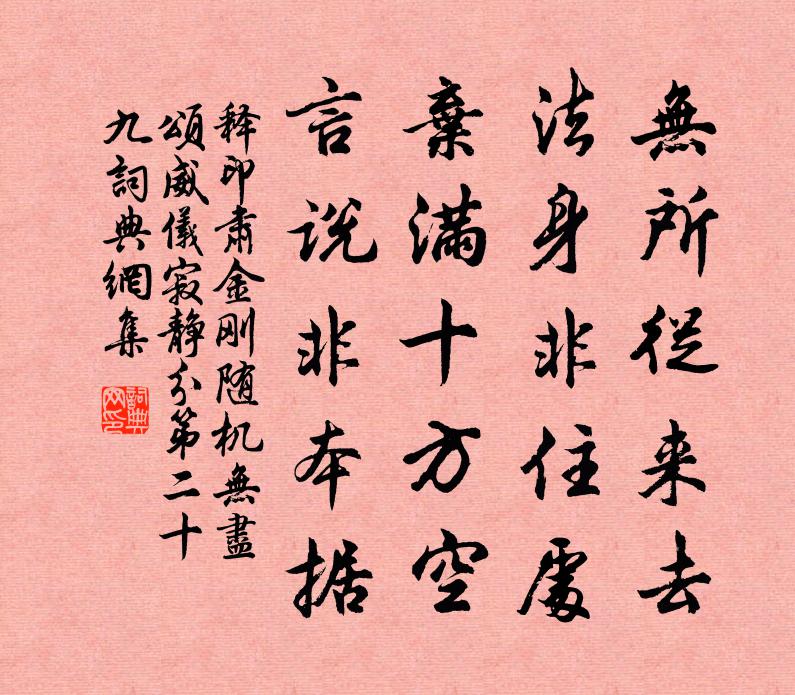 無所從来去
法身非住處
棄滿十方空
言说非本据
释印肃金刚随机無盡
頌威儀寂静分第二十
九詞典網集
詞典
网